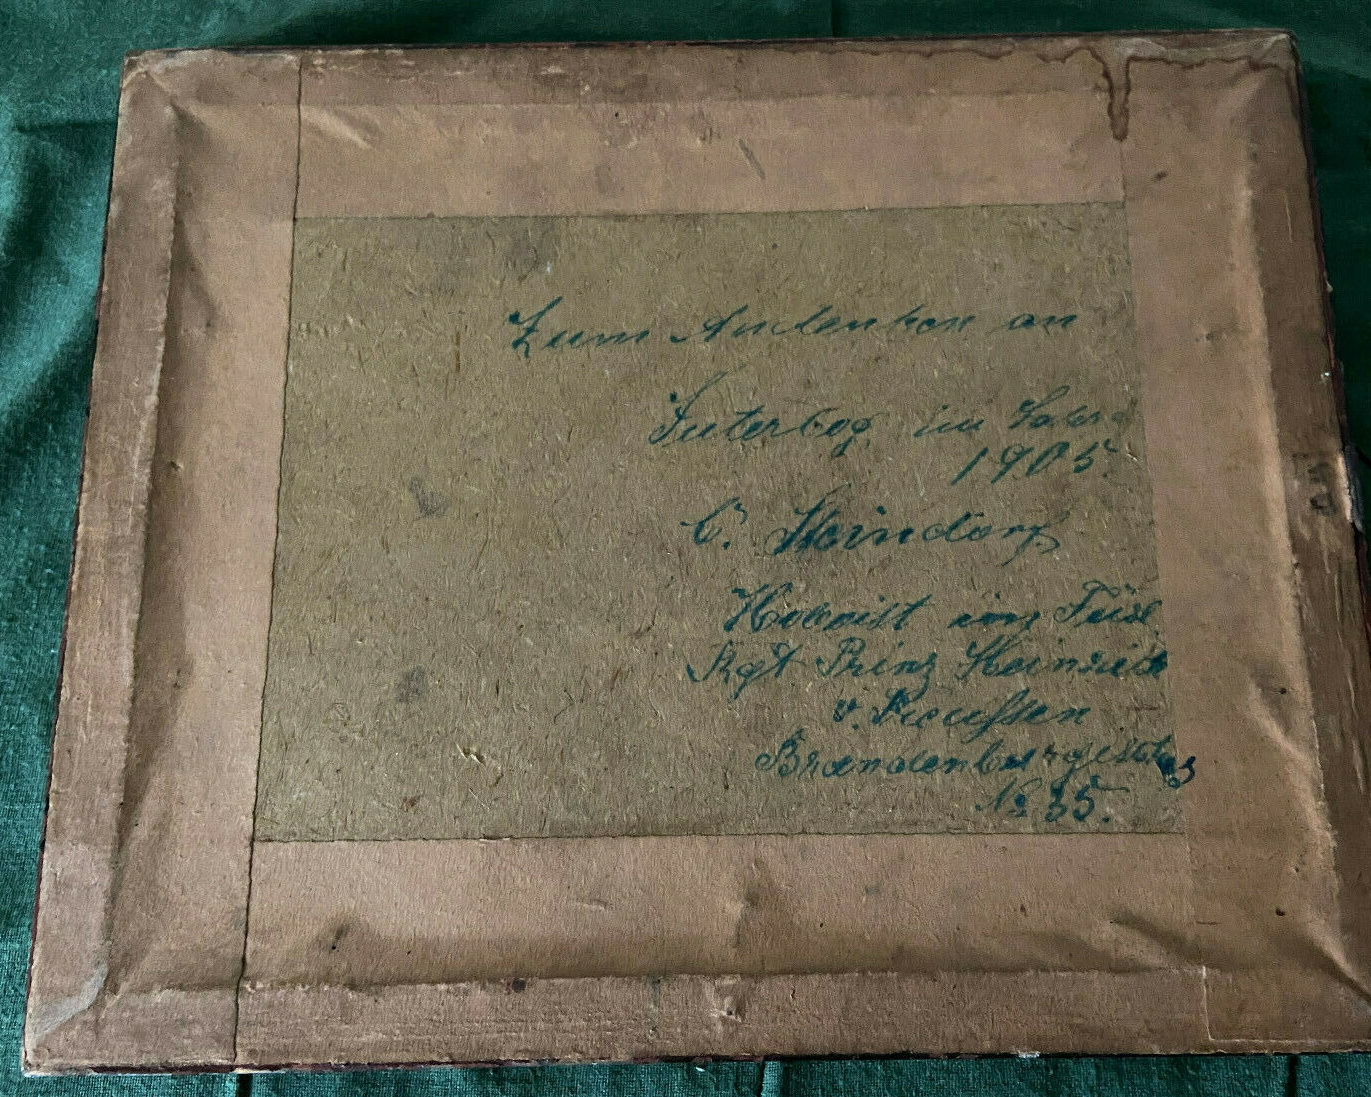 Zum Andenken an
Juterbog im Jahre
1905.
C. Heindorf
Hoboist im Füsl.
Rgt Prinz Heinrich
v. Preußen
Brandenburgisches
No 35.